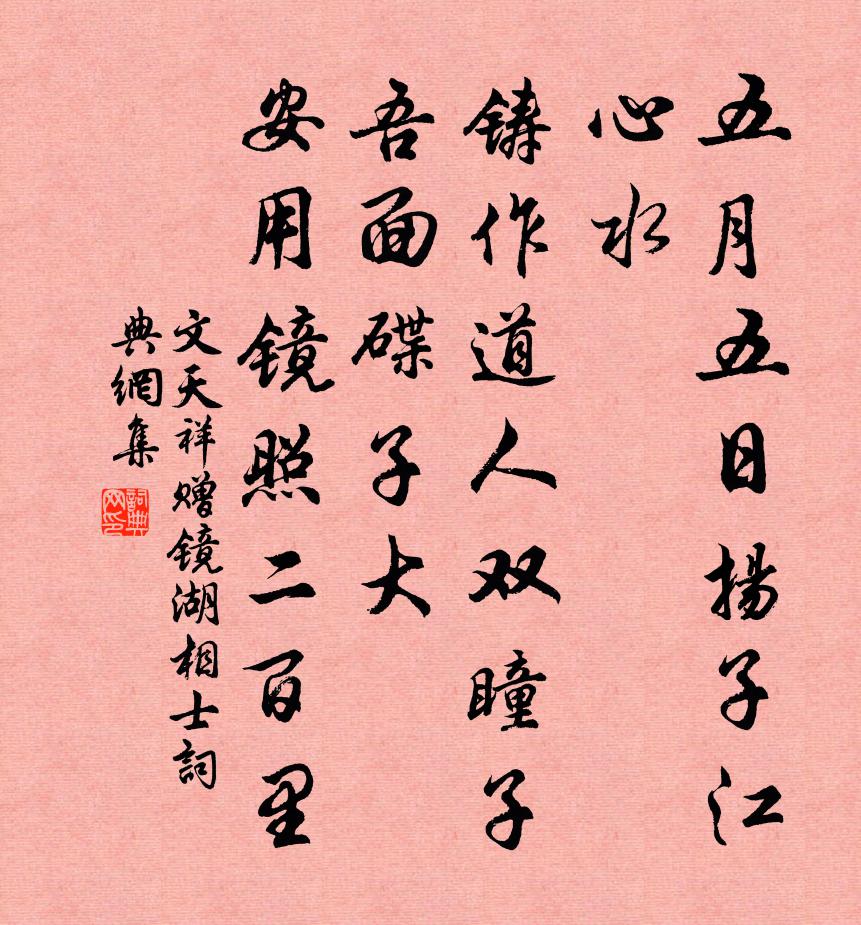 五月五日揚子江
心水
铸作道人双瞳子
吾面碟子大
安用镜照二百里
文天祥赠镜湖相士詞
典網集
詞典
网印